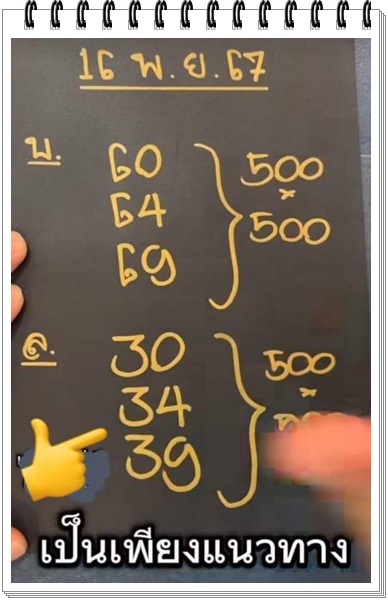 16 พ.ย.67
บ. 60 500
64 ×
69 500
ล. 30 500
34 ×
39
เป็นเพียงแนวทาง